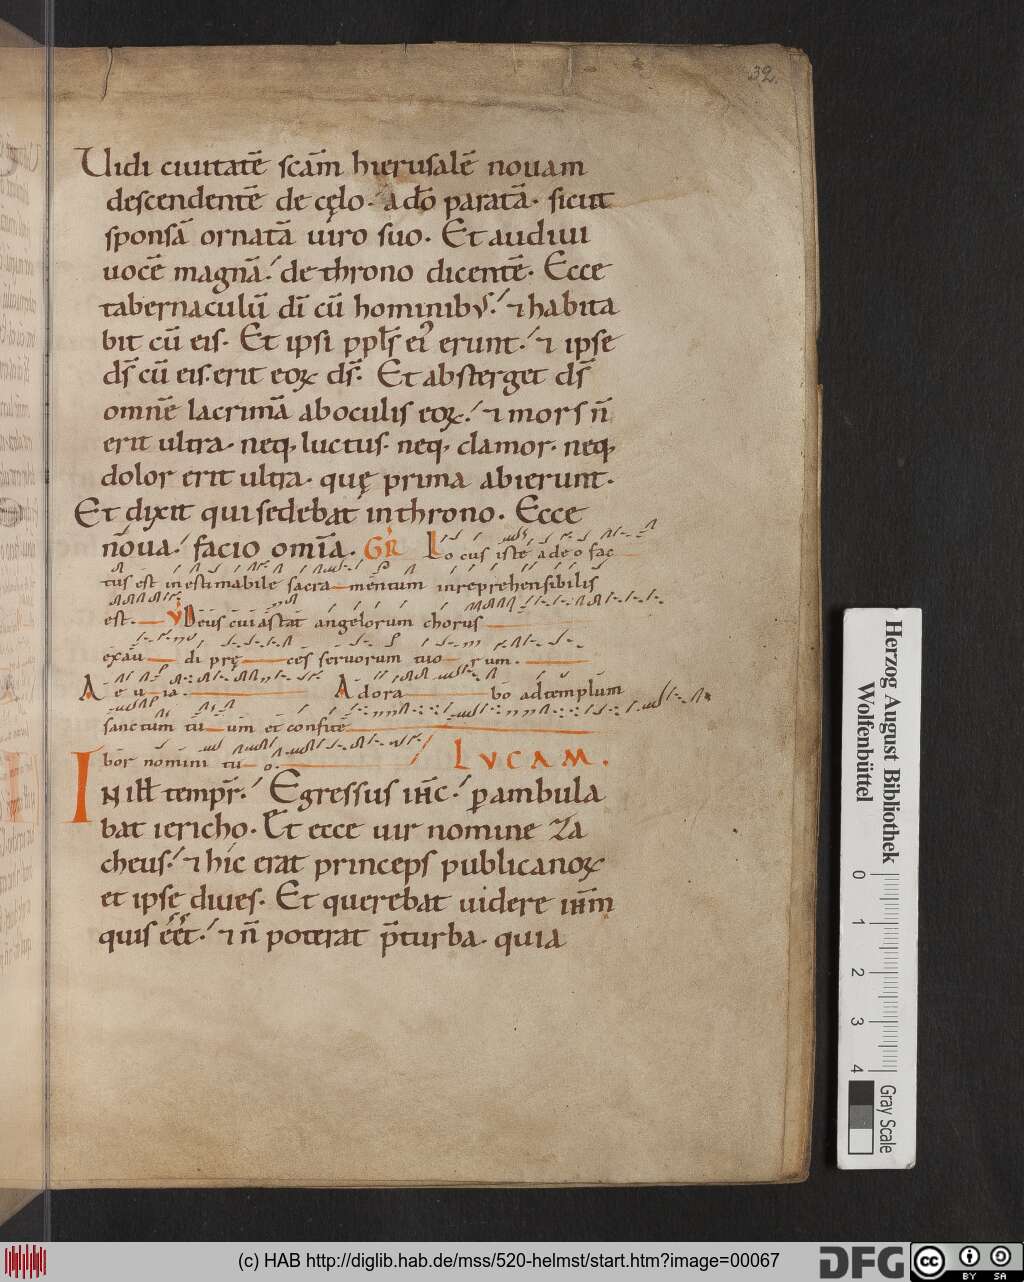 32.
Uidi ciuitatē scā̄m hierusalē nouam
descendentē de cęlo. a dō paratā. sicut
sponsā ornatā uiro suo. Et audiui
uocē magnā. de throno dicentē. Ecce
tabernaculū dī cū hominibus. ⁊ habita
bit cū eis. Et ipsi ppl̄s ei᾽ erunt. ⁊ ipse
ds̄ cū eis. erit eoꝝ ds̄. Et absterget ds̄
omnē lacrimā aboculis eoꝝ. ⁊ mors n̄
erit ultra. neq; luctus. neq; clamor. neq;
dolor erit ultra. quę prima abierunt.
Et dixit qui sedebat in throno. Ecce
noua. facio om̄ia. GR̄ Locus iste a deo fac
tus est inestimabile sacramentum inreprehensibilis
est. V Deus cui astat angelorum chorus
exau di prę ces seruorum tuo rum.
Ae u ia. Adora bo ad templum
sanctum tu um et confite
bor nomini tu o. LVCAM.
IN ill̄ temp̄r. Egressus ih̄c. ꝑambula
bat iericho. Et ecce uir nomine Za
cheus. ⁊ hic erat princeps publicanoꝝ
et ipse diues. Et querebat uidere ih̄m
quis eēt. ⁊ n̄ poterat p̄ turba. quia
Herzog August Bibliothek
Wolfenbüttel
0 1 2 3 4
Gray Scale
(c) HAB http://diglib.hab.de/mss/520-helmst/start.htm?image=00067
DFG
cc BY SA